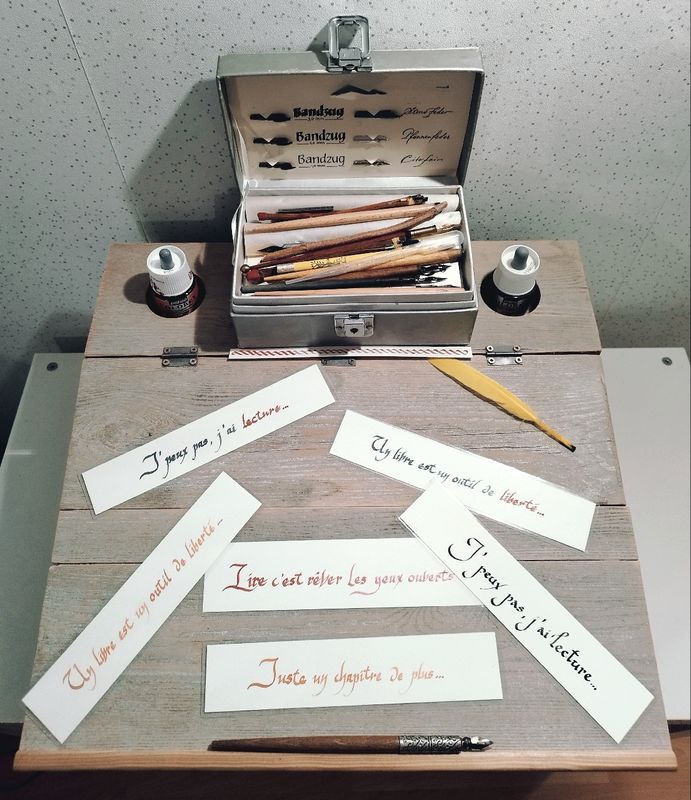 Bandzug
Bandzug
Bandzug
Pfannenfeder
Citofein
J'peux pas, j'ai lecture...
Un libre est un outil de liberté...
Un libre est un outil de liberté...
Lire c'est rêver les yeux ouverts
J'peux pas, j'ai lecture...
Juste un chapitre de plus...